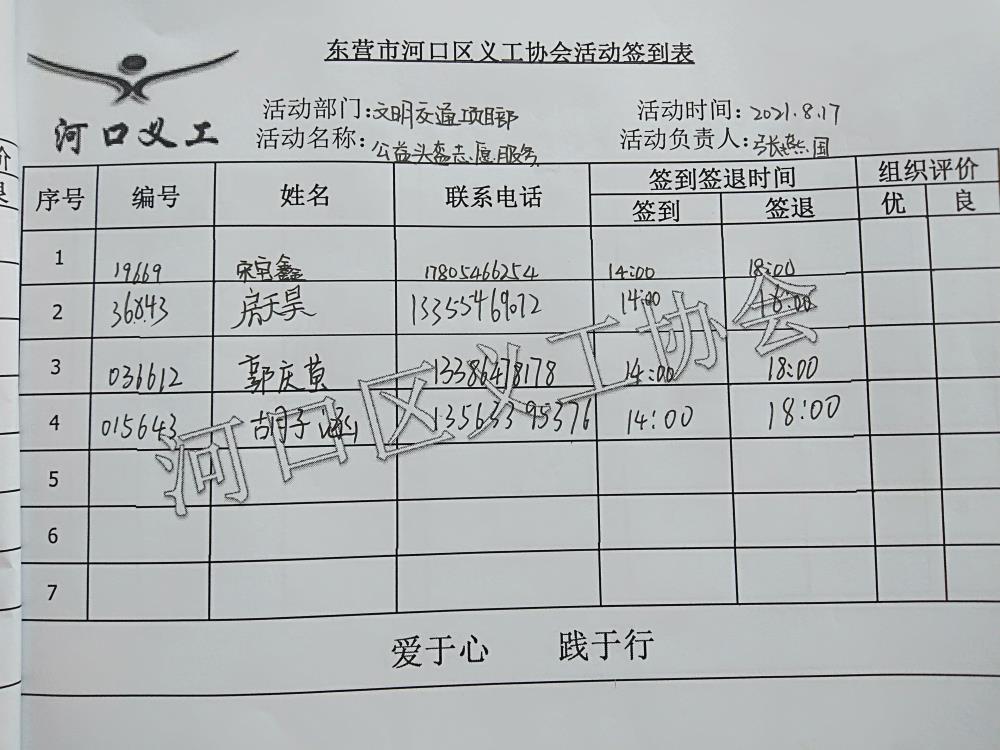 东营市河口区义工协会活动签到表
河口义工
活动部门:文明交通项目部 活动时间:2021.8.17
活动名称:公益头盔志愿服务 活动负责人:张燕国
序号 编号 姓名 联系电话 签到签退时间 组织评价
签到 签退 优 良
1 19669 宋官鑫 17805466254 14:00 18:00
2 36843 房天昊 13355469072 14:00 18:00
3 036612 郭庆黄 13386478178 14:00 18:00
4 015643 胡子涵 13563395376 14:00 18:00
5
6
7
河口区义工协会
爱于心 践于行
价